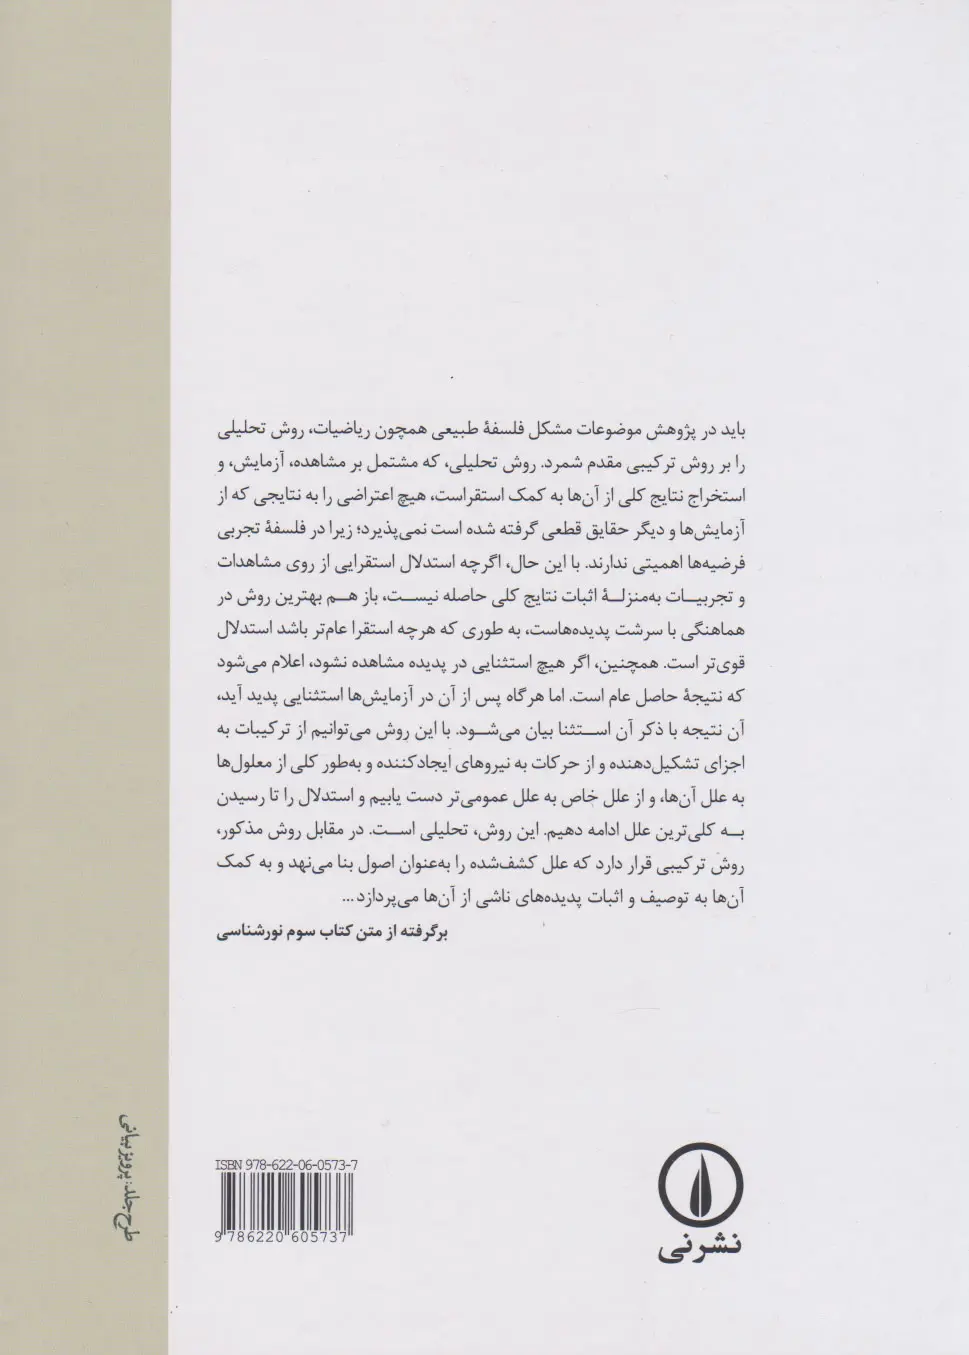 باید در پژوهش موضوعات مشکل فلسفهٔ طبیعی همچون ریاضیات، روش تحلیلی
را بر روش ترکیبی مقدم شمرد. روش تحلیلی، که مشتمل بر مشاهده، آزمایش، و
استخراج نتایج کلی از آن‌ها به کمک استقراست، هیچ اعتراضی را به نتایجی که از
آزمایش‌ها و دیگر حقایق قطعی گرفته شده است نمی‌پذیرد؛ زیرا در فلسفهٔ تجربی
فرضیه‌ها اهمیتی ندارند. با این حال، اگرچه استدلال استقرایی از روی مشاهدات
و تجربیات به‌منزلهٔ اثبات نتایج کلی حاصله نیست، باز هم بهترین روش در
هماهنگی با سرشت پدیده‌هاست، به طوری که هرچه استقرا عام‌تر باشد استدلال
قوی‌تر است. همچنین، اگر هیچ استثنایی در پدیده مشاهده نشود، اعلام می‌شود
که نتیجهٔ حاصل عام است. اما هرگاه پس از آن در آزمایش‌ها استثنایی پدید آید،
آن نتیجه با ذکر آن استثنا بیان می‌شود. با این روش می‌توانیم از ترکیبات به
اجزای تشکیل‌دهنده و از حرکات به نیروهای ایجادکننده و به‌طور کلی از معلول‌ها
به علل آن‌ها، و از علل خاص به علل عمومی‌تر دست یابیم و استدلال را تا رسیدن
به کلی‌ترین علل ادامه دهیم. این روش، تحلیلی است. در مقابل روش مذکور،
روش ترکیبی قرار دارد که علل کشف‌شده را به‌عنوان اصول بنا می‌نهد و به کمک
آن‌ها به توصیف و اثبات پدیده‌های ناشی از آن‌ها می‌پردازد...
برگرفته از متن کتاب سوم نورشناسی
طرح جلد: پرویز بیانی
ISBN 978-622-06-0573-7
9 786220 605737
نشرنی